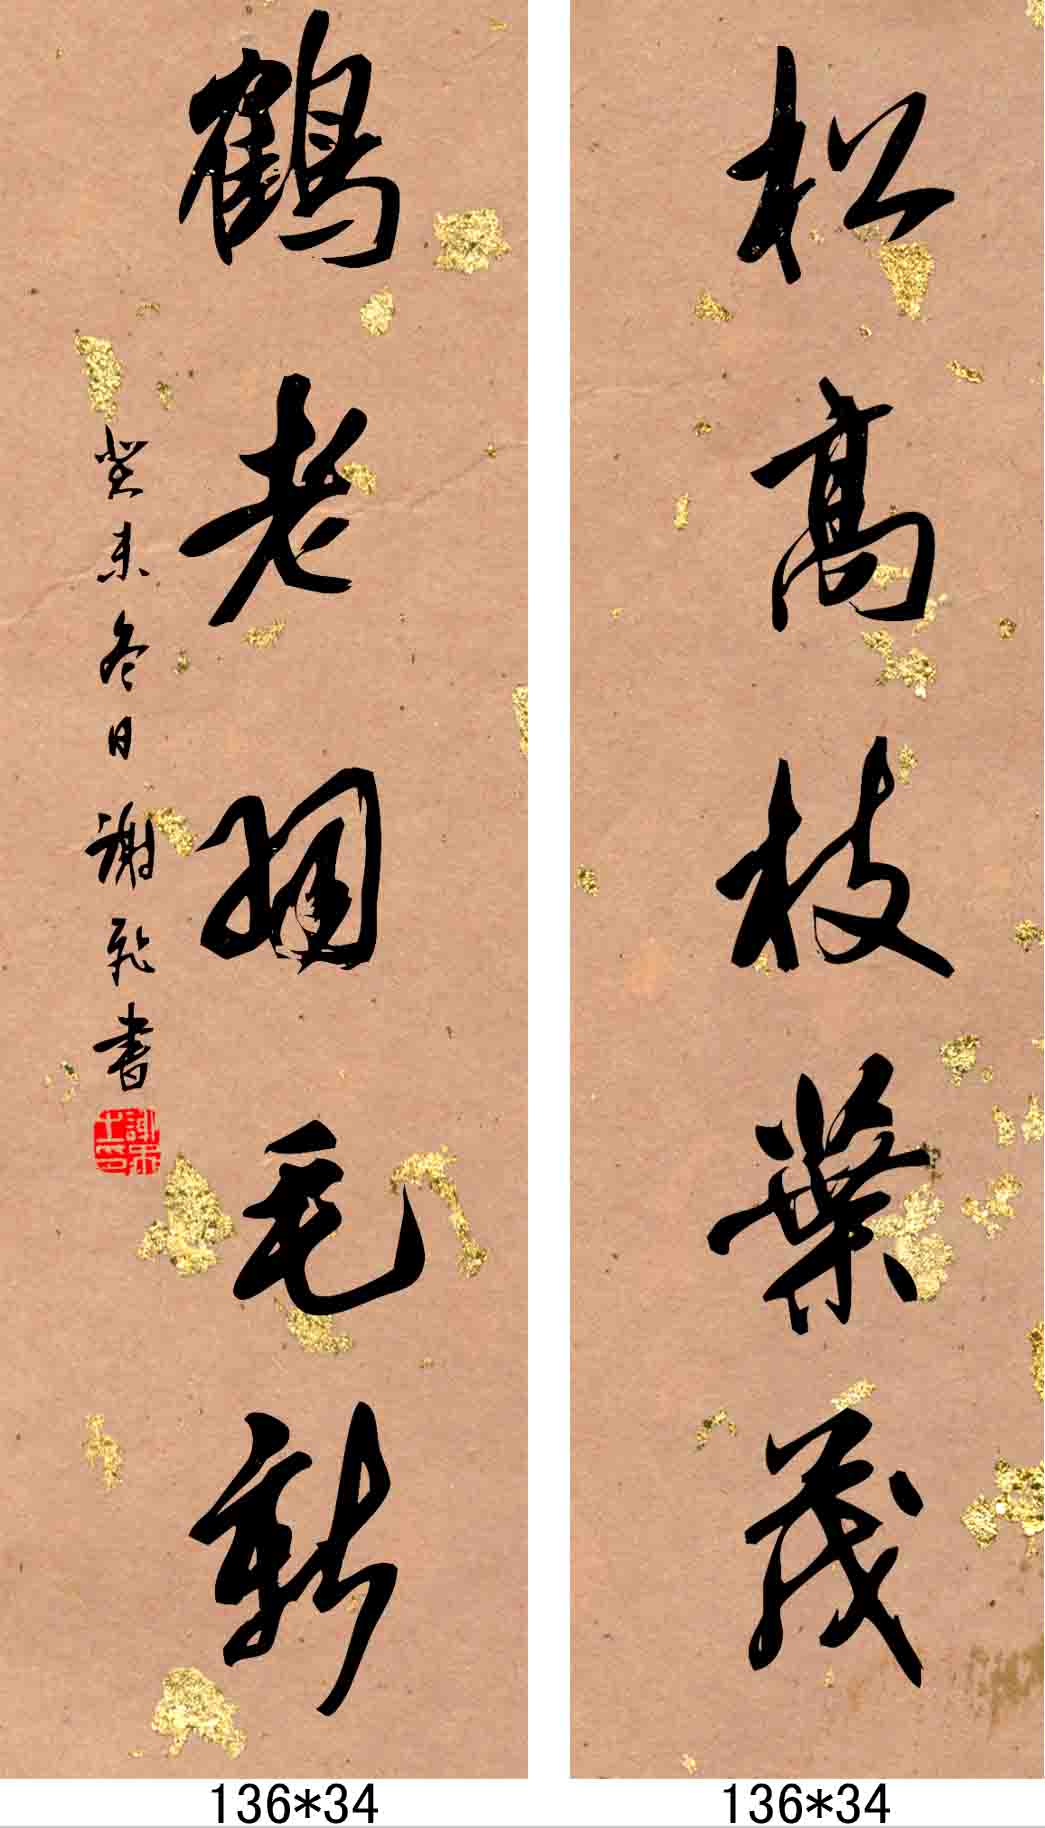 松高枝葉茂
鶴老羽毛新
癸未冬日謝書
136*34
136*34